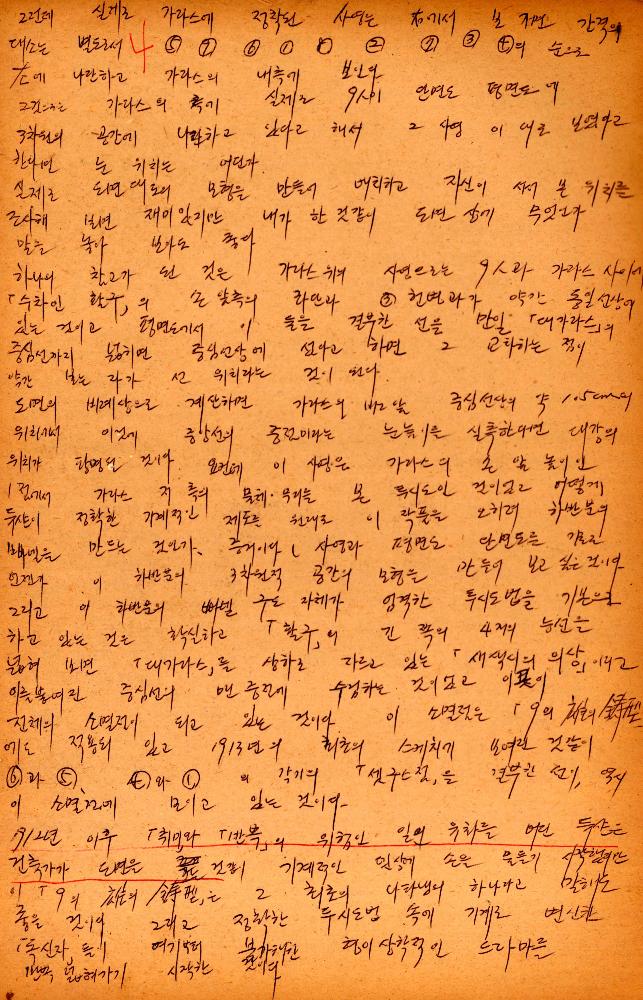 그런데 실제로 가라스에 정착된 사영은 右에서 본 저면 간격의
대소는 별도로서 4 ⑤ ⑦ ⑥ ① ⑧ ② ③ 의 순으로
左에 나란하고 가라스의 내측에 보인다
그것은 가라스의 측에 실제로 9人이 안면도 평면도에
3차원의 공간에 나란하고 있다고 해서 그 사영이 대로 보였다고
한다면 눈 위치는 어딘가
실제로 도면대로의 모형을 만들어 배치하고 자신이 서서 본 위치를
조사해 보면 재미있지만 내가 한 것같이 도면상에 무엇인가
말을 놓아 보아도 좋다
하나의 참고가 된 것은 가라스 위의 사영으로는 9人과 가라스 사이에
「수차인 활구」의 손 앞측의 라인과 ③ 헌병과가 약간 동일선상에
있는 것이고 평면도에서 이 둘을 결부한 선을 만일 「대가라스」의
중심선까지 넓히면 중심선상에 선다고 하면 그 교차하는 점이
약간 보는 자가 선 위치라는 것이 된다
도면의 비례상으로 계산하면 가라스의 바로 앞 중심선상의 약 1.05cm의
위치에서 이것에 중앙선의 중점이라는 눈높이를 실측한다면 대강의
위치가 판명된 것이다. 요컨데 이 사영은 가라스의 손 앞 높이인
1점에서 가라스 저 측의 물체·무리를 본 투시도인 것이었고 어떻게
듀샹이 정확한 기계적인 제도를 원래로 이 작품을 오히려 하반분의
빠넬을 만드는 것인가. 증거이다 사영과 평면도 단면도를 기초로
언젠가 이 하반분의 3차원적 공간의 모형은 만들어 보고 싶은 것이다
그리고 이 하반분의 빠넬 구도 자체가 엄격한 투시도법을 기본으로
하고 있는 것은 확실하고 「활구」의 긴 쪽의 4저의 능선을
넓혀 보면 「대가라스」를 상하로 가르고 있는 「새색시의 의상」이라고
이름붙여진 중심선의 맨 중점에 수검하는 것이었고 이점이
전체의 소멸점이 되고 있는 것이다 이 소멸점은 「9의 雄의 鑄型」
에도 적용되 있고 1913년의 최초의 스케치가 보여준 것같이
⑥과 ⑤ ④와 ① 의 각기의 「섹구스점」을 결부한 선이, 역시
이 소멸점에 모이고 있는 것이다
1912년 이후 「처녀와 「반복」의 위험인 일의 유화를 버린 듀샹은
건축가가 도면을 그린 것의 기계적인 일상에 손을 물들기 시작했지만
이 「9의 雄의 鑄型」은 그 최초의 나타냄의 하나라고 말해도
좋을 것이다 그리고 정확한 투시도법 속에 기계로 변신한
「독신자」들이 여기부터 불가해한 형이상학적인 드라마를
반복 넓혀가기 시작한 것이다